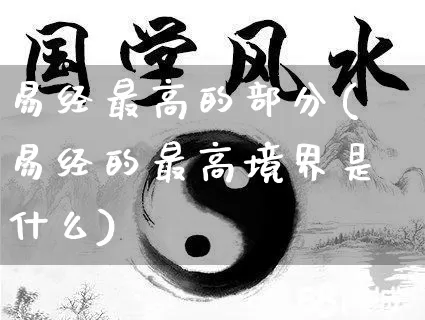 国学风水
易经最高的部分(
易经的最高境界是
什么)